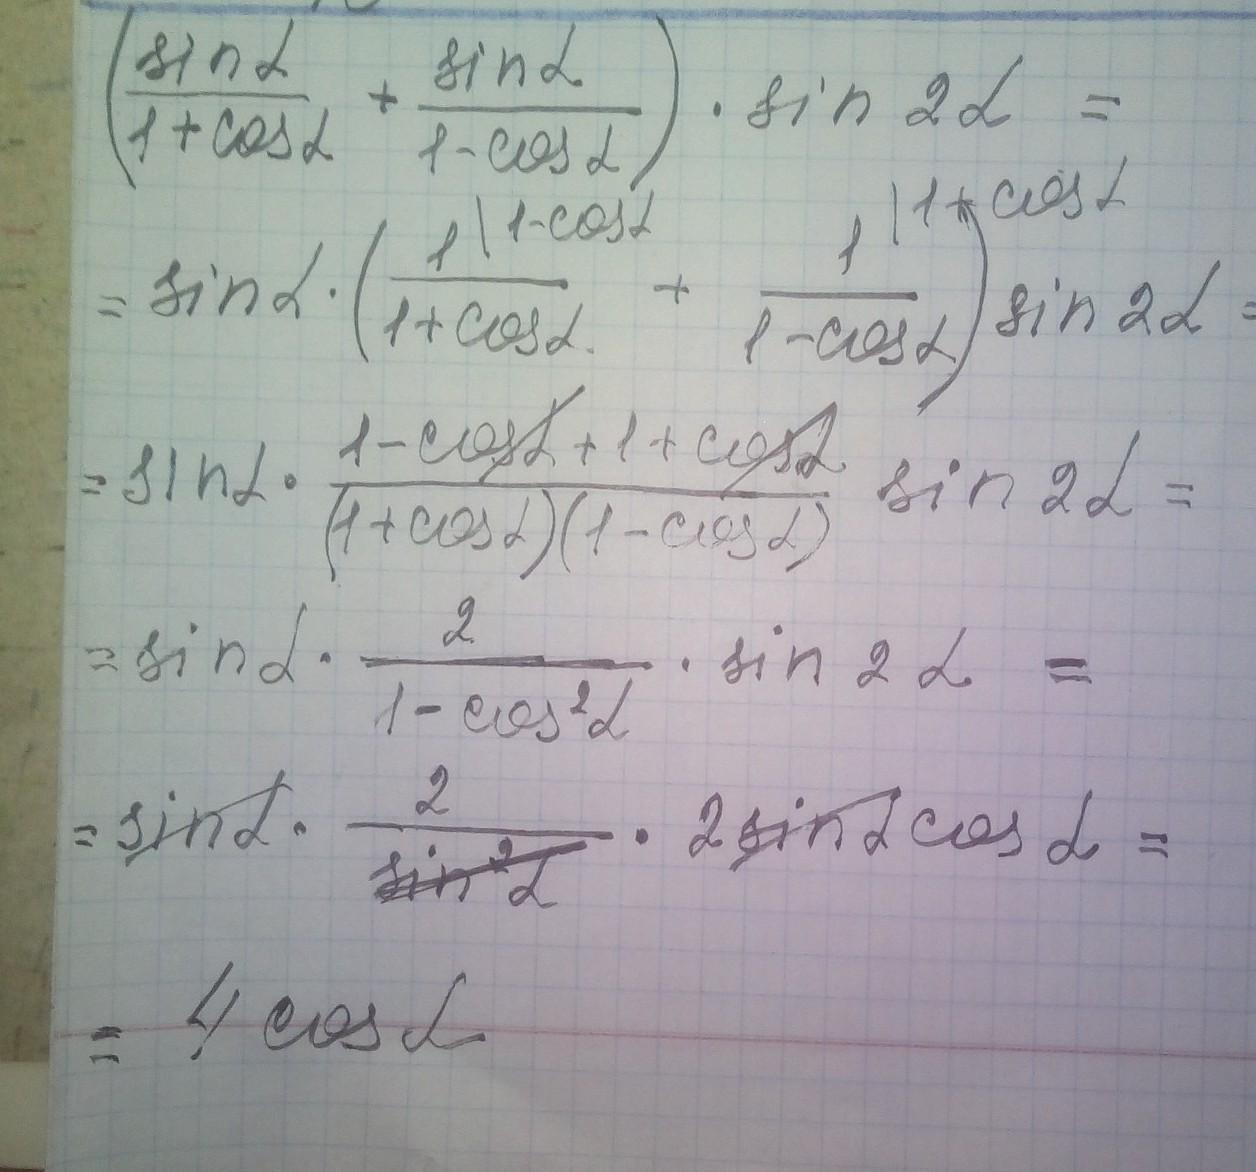 (sinα/(1+cosα) + sinα/(1-cosα)) · sin 2α =
= sinα · (1\1-cosα/(1+cosα) + 1\1+cosα/(1-cosα)) sin 2α =
= sinα · (1-cosα+1+cosα)/((1+cosα)(1-cosα)) sin 2α =
= sinα · 2/(1-cos²α) · sin 2α =
= sinα · 2/sin²α · 2sinα cos α =
= 4 cos α